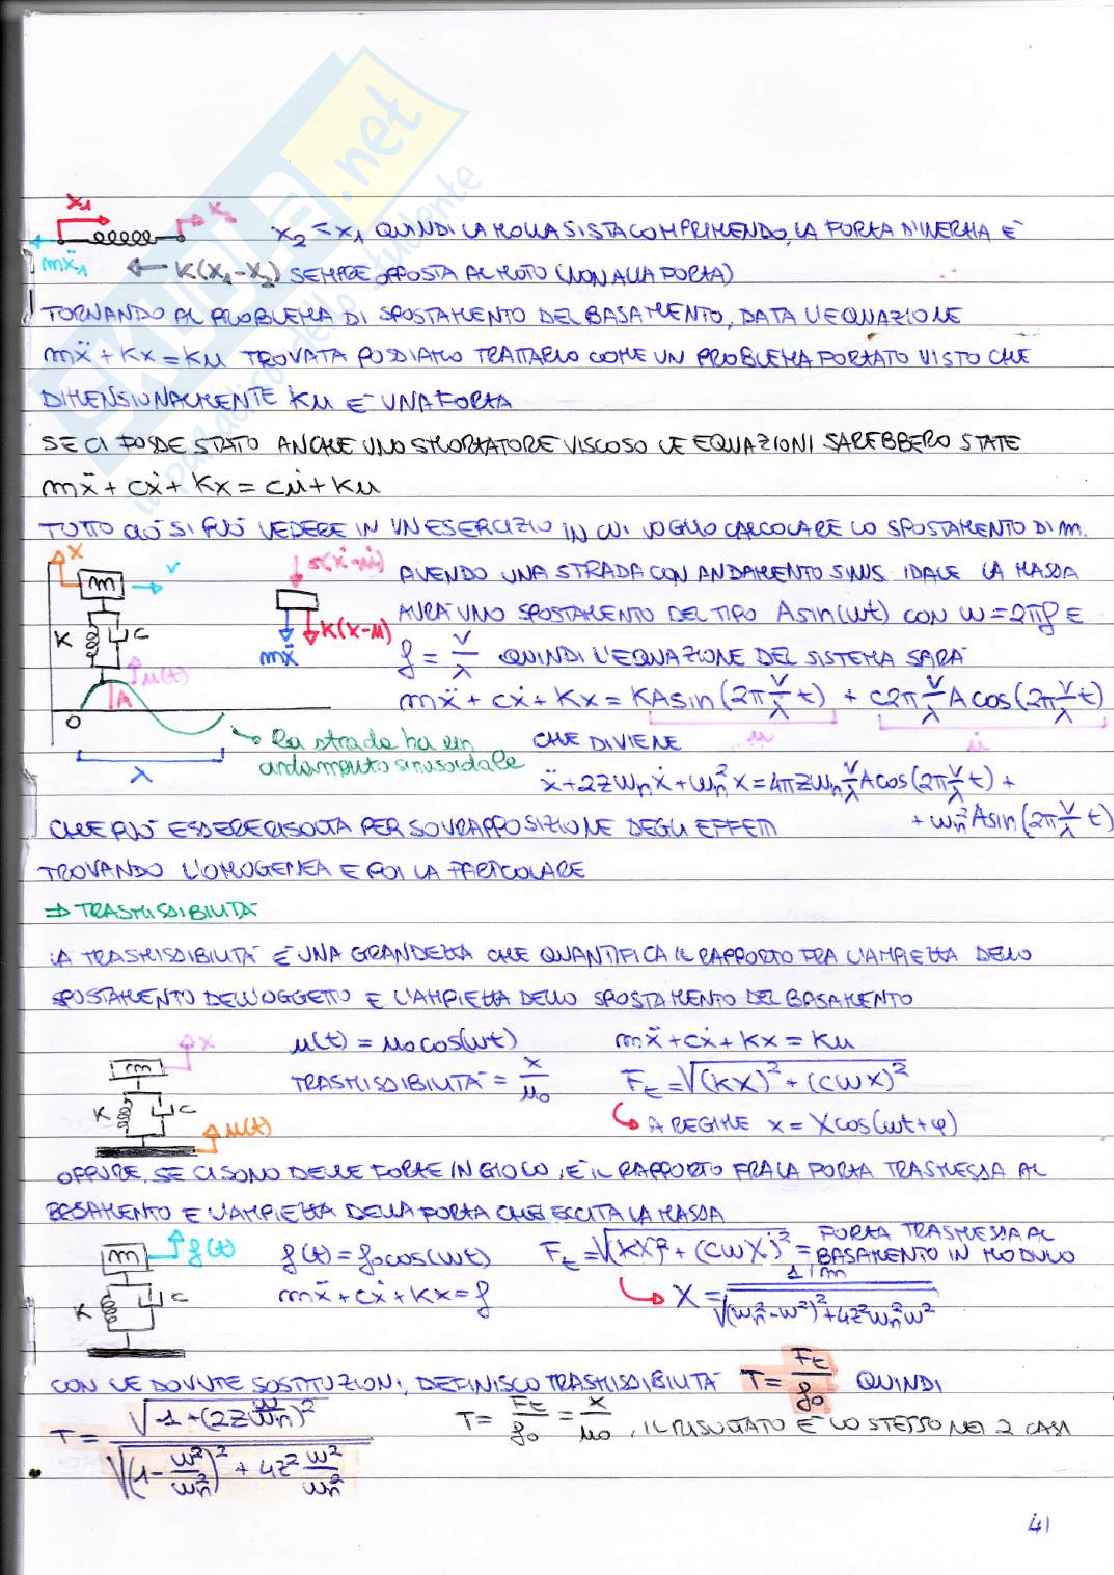 x₁ x₂ x₂ < x₁ QUINDI LA MOLLA SI STA COMPRIMENDO, LA FORZA D'INERZIA È
mẍ₁ K(x₁-x₂) SEMPRE OPPOSTA AL MOTO (NON ALLA FORZA)
TORNANDO AL PROBLEMA DI SPOSTAMENTO DEL BASAMENTO, DATA L'EQUAZIONE
mẍ + Kx = Ku TROVATA POSSIAMO TRATTARLO COME UN PROBLEMA FORZATO VISTO CHE
DIMENSIONALMENTE Ku È UNA FORZA
SE CI FOSSE STATO ANCHE UNO SMORZATORE VISCOSO LE EQUAZIONI SAREBBERO STATE
mẍ + cẋ + Kx = cu̇ + Ku
TUTTO CIÒ SI PUÒ VEDERE IN UN ESERCIZIO IN CUI VOGLIO CALCOLARE LO SPOSTAMENTO DI m.
x m v K c u(t) A O λ
(ẋ-u̇) K(x-u) mẍ
AVENDO UNA STRADA CON ANDAMENTO SINUSOIDALE LA MASSA
AVRÀ UNO SPOSTAMENTO DEL TIPO Asin(ωt) CON ω = 2πf E
f = v/λ QUINDI L'EQUAZIONE DEL SISTEMA SARÀ
mẍ + cẋ + Kx = KAsin(2π v/λ t) + c2π v/λ A cos(2π v/λ t)
u u̇
La strada ha un CHE DIVIENE
andamento sinusoidale
ẍ + 2zωₙẋ + ωₙ²x = 4πzωₙ v/λ A cos(2π v/λ t) +
+ ωₙ² A sin(2π v/λ t)
CHE PUÒ ESSERE RISOLTA PER SOVRAPPOSIZIONE DEGLI EFFETTI
TROVANDO L'OMOGENEA E POI LA PARTICOLARE
⇒ TRASMISSIBILITÀ
LA TRASMISSIBILITÀ È UNA GRANDEZZA CHE QUANTIFICA IL RAPPORTO FRA L'AMPIEZZA DELLO
SPOSTAMENTO DELL'OGGETTO E L'AMPIEZZA DELLO SPOSTAMENTO DEL BASAMENTO
x m K c u(t)
u(t) = u₀cos(ωt) mẍ + cẋ + Kx = Ku
TRASMISSIBILITÀ = x/u₀ Fₜ = √((KX)² + (cωX)²)
↳ A REGIME x = Xcos(ωt+φ)
OPPURE, SE CI SONO DELLE FORZE IN GIOCO, È IL RAPPORTO FRA LA FORZA TRASMESSA AL
BASAMENTO E L'AMPIEZZA DELLA FORZA CHE ECCITA LA MASSA
m f(t) K c
f(t) = f₀cos(ωt) Fₜ = √((KX)² + (cωX)²) = FORZA TRASMESSA AL
BASAMENTO IN MODULO
mẍ + cẋ + Kx = f ↳ X = (1/m)/√((ωₙ²-ω²)² + 4z²ωₙ²ω²)
CON LE DOVUTE SOSTITUZIONI, DEFINISCO TRASMISSIBILITÀ T = Fₜ/f₀ QUINDI
T = √(1 + (2z ω/ωₙ)²) / √((1 - ω²/ωₙ²)² + 4z² ω²/ωₙ²) T = Fₜ/f₀ = x/u₀, IL RISULTATO È LO STESSO NEI 2 CASI
41
.net